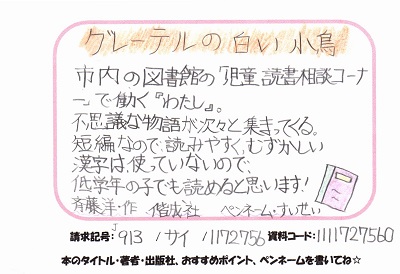 グレーテルの白い小鳥
市内の図書館の「児童読書相談コーナ
ー」で働く『わたし』。
不思議な物語が次々と集まってくる。
短編なので、読みやすく、むずかしい
漢字は、使っていないので、
低学年の子でも読めると思います!
斉藤洋・作 偕成社 ペンネーム・すいせい
請求記号: J 913 / サイ / 1172756 資料コード: 1111727560
本のタイトル・著者・出版社、おすすめポイント、ペンネームを書いてね☆